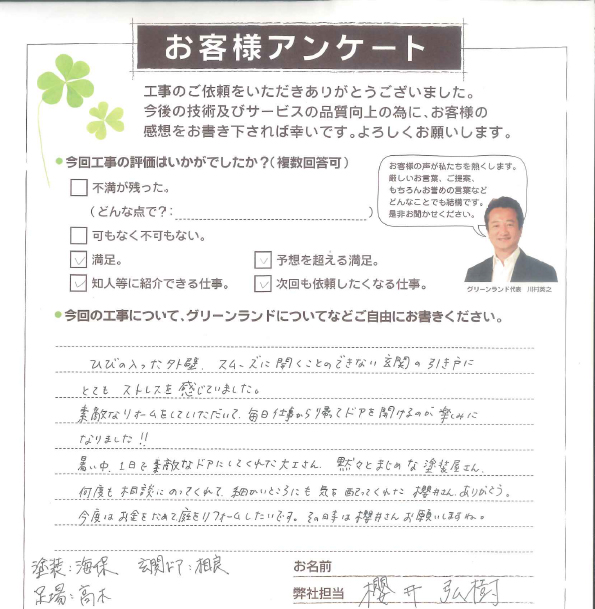 お客様アンケート
工事のご依頼をいただきありがとうございました。
今後の技術及びサービスの品質向上の為に、お客様の
感想をお書き下されば幸いです。よろしくお願いします。
●今回工事の評価はいかがでしたか?(複数回答可)
不満が残った。
(どんな点で?: )
可もなく不可もない。
満足。
予想を超える満足。
知人等に紹介できる仕事。
次回も依頼したくなる仕事。
お客様の声が私たちを熱くします。
厳しいお言葉、ご提案、
もちろんお誉めの言葉など
どんなことでも結構です。
是非お聞かせください。
グリーンランド代表 川村真之
●今回の工事について、グリーンランドについてなどご自由にお書きください。
ひびの入った外壁、スムーズに開くことのできない玄関の引き戸に
とても ストレスを感じていました。
素敵なリホームをしていただいて、毎日仕事から帰ってドアを開けるのが楽しみに
なりました!!
暑い中、1日で素敵なドアにしてくれた大工さん、黙々とまじめな塗装屋さん、
何度も相談にのってくれて、細かいところにも気を配ってくれた櫻井さん、ありがとう。
今度はお金をためて庭をリフォームしたいです。その時は櫻井さんお願いしますね。
塗装:海保 玄関ドア:相良
足場:高木
お名前
弊社担当 櫻井 弘樹